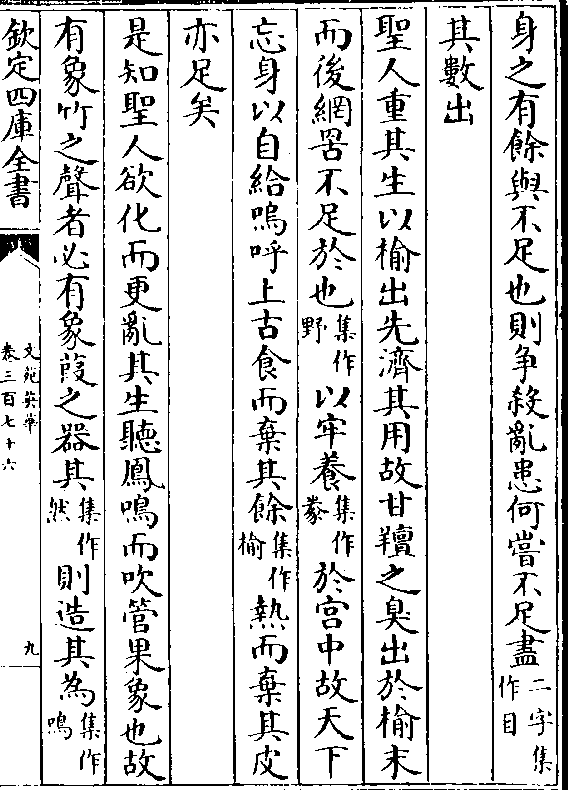 身之有餘與不足也則争殺亂患何嘗不足盡二字集作目
其數出
聖人重其生以榆出先濟其用故甘羶之臭出於榆末
而後網罟不足於也集作野以牢養集作豢於宫中故天下
忘身以自給嗚呼上古食而棄其餘集作榆熱而棄其皮
亦足矣
是知聖人欲化而更亂其生聽鳳鳴而吹管果象也故
有象竹之聲者必有象葭之器其集作然則造其為集作鳴
欽定四庫全書
文苑英華
卷三百七十六
九